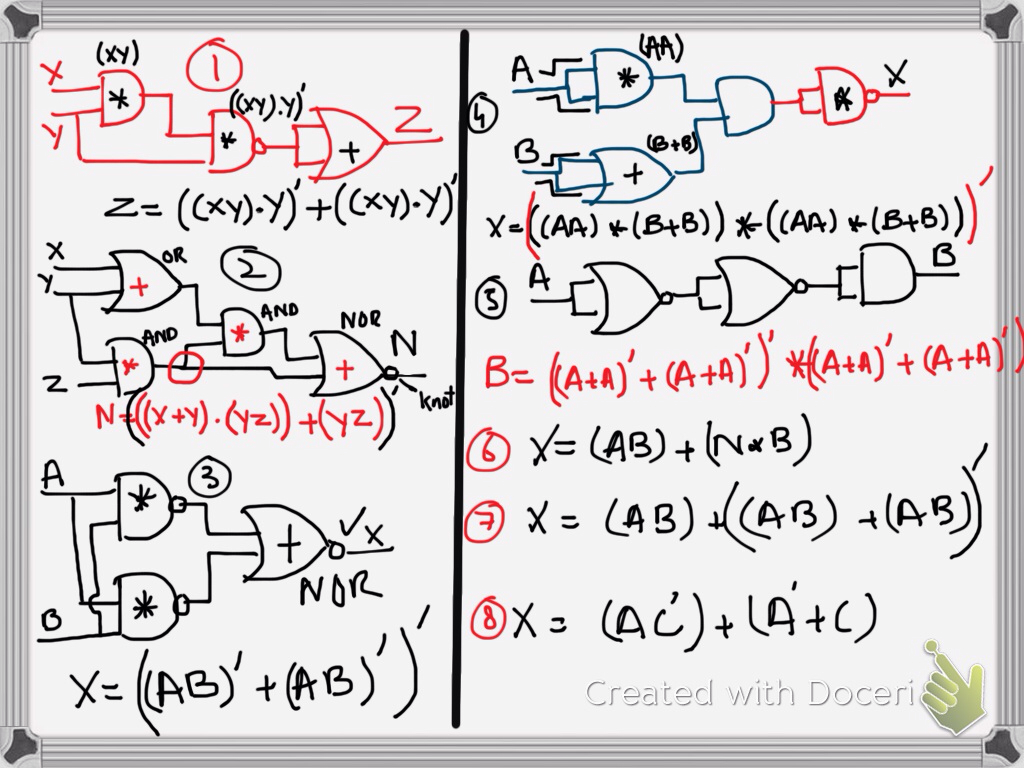 (XY)
1
X
*
Y
((XY).Y)'
*
+
Z
Z = ((XY).Y)' + ((XY).Y)'
X
Y
OR
2
+
AND
*
AND
*
NOR
+
N
Z
knot
N = (((X+Y).(YZ)) + (YZ))'
A
3
*
*
B
+
X
NOR
X = ((AB)' + (AB)')'
4
A
(AA)
*
X
*
B
(B+B)
+
X = (((AA) * (B+B)) * ((AA) * (B+B)))'
5
A
B
B = ((A+A)' + (A+A)')' * ((A+A)' + (A+A)')
6 X = (AB) + (N*B)
7 X = (AB) + ((AB) + (AB))'
8 X = (AC') + (A'+C)
Created with Doceri